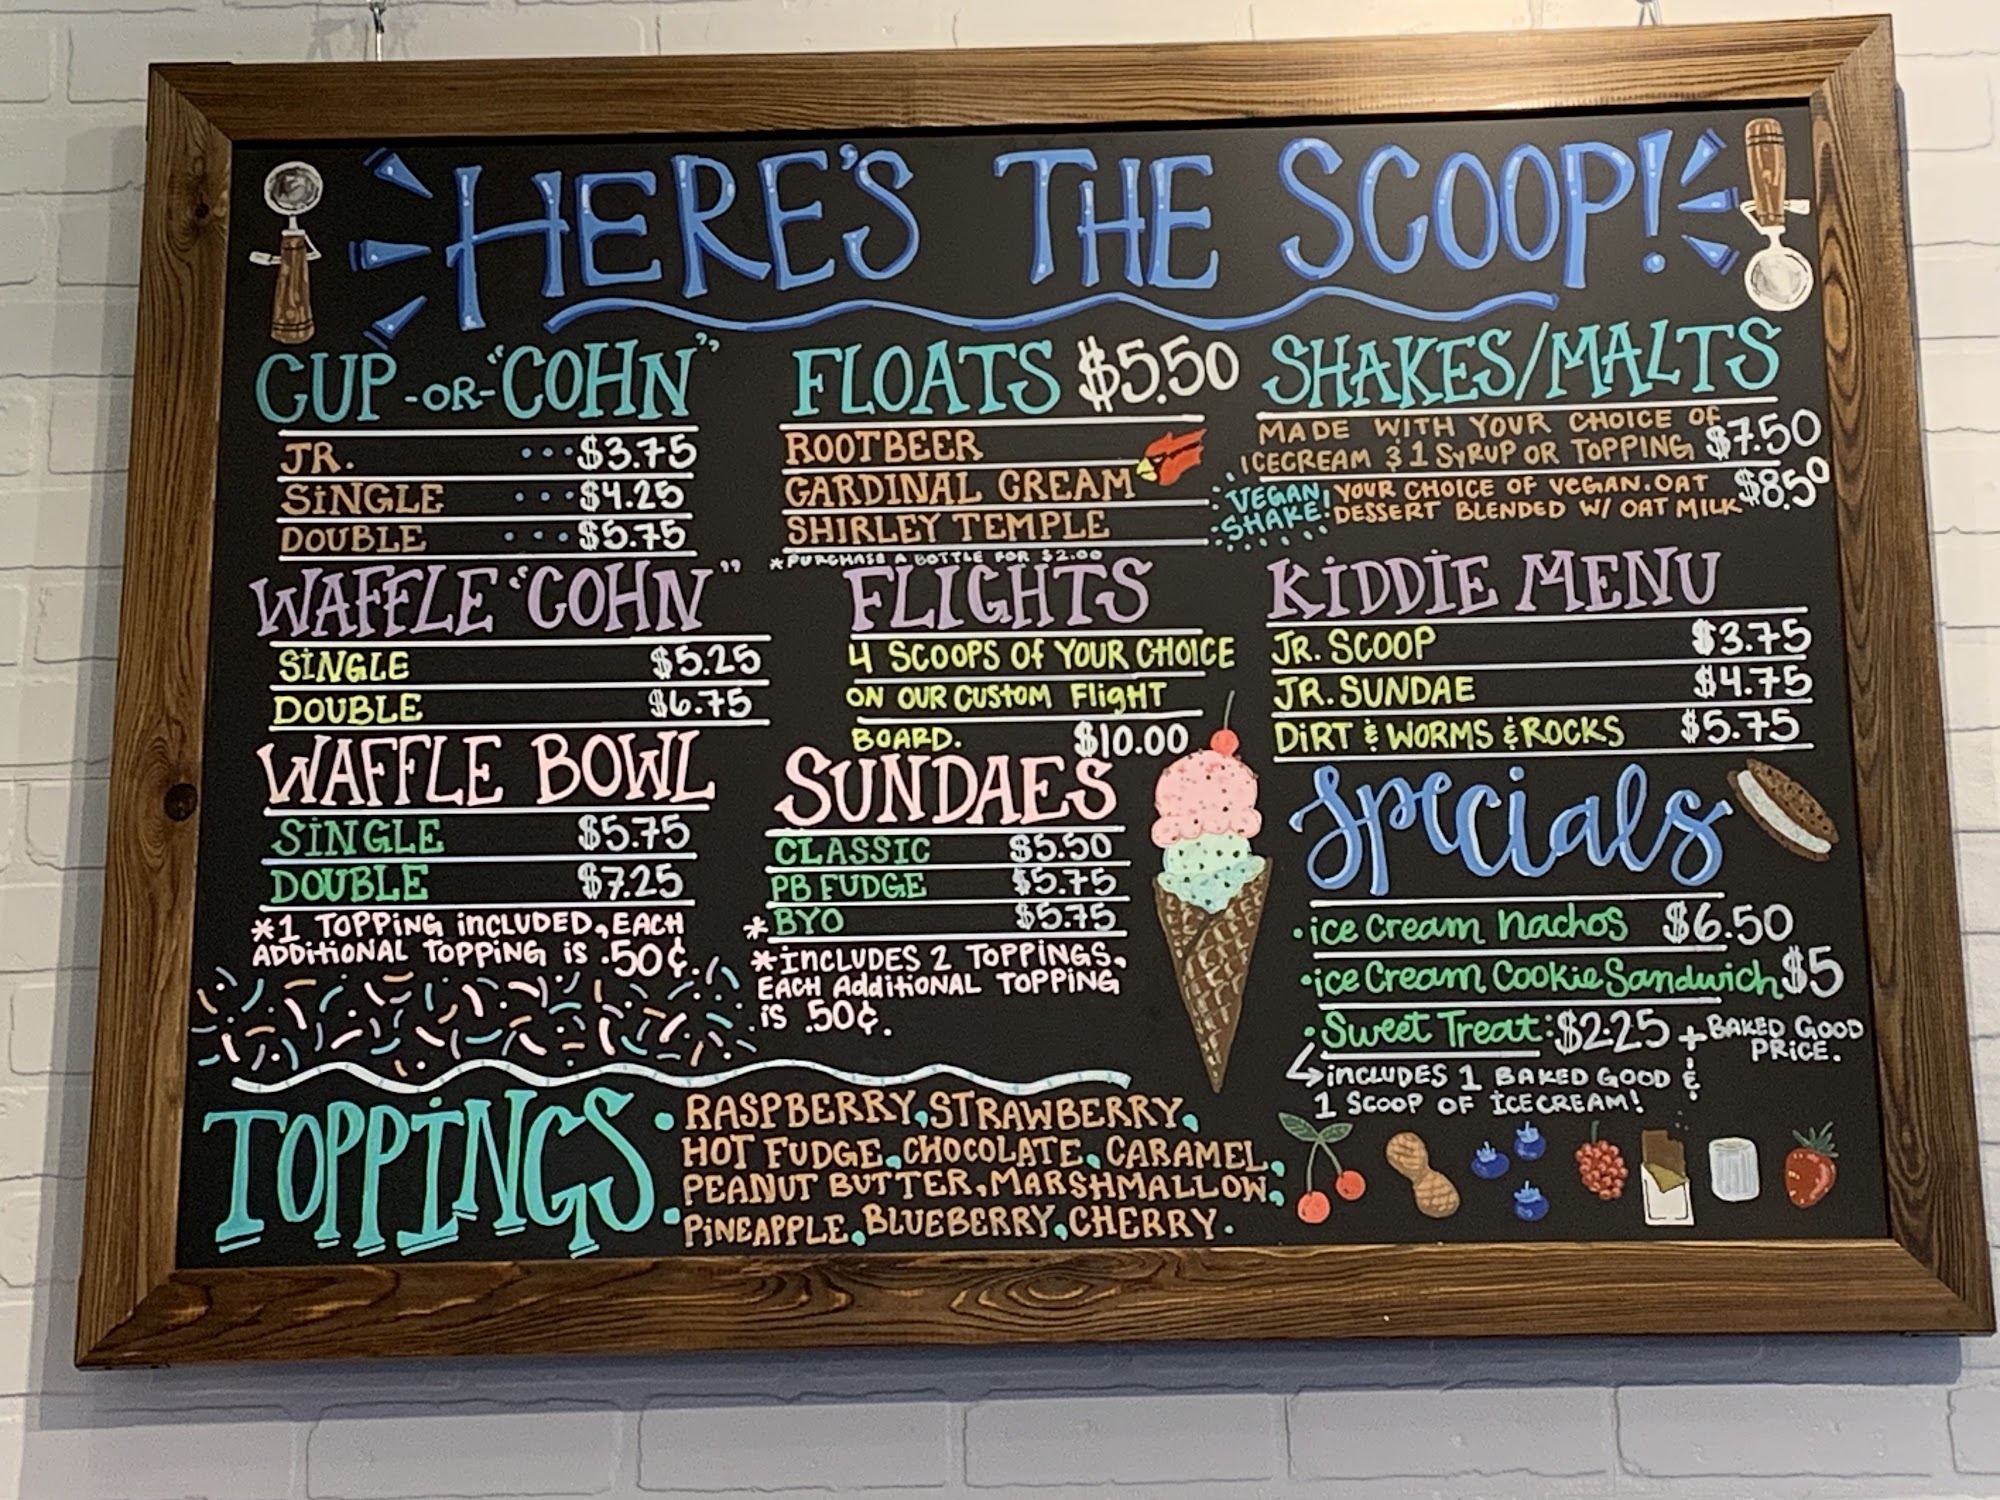 HERE'S THE SCOOP!
CUP -OR- "COHN"
JR. ...$3.75
SINGLE ...$4.25
DOUBLE ...$5.75
WAFFLE "COHN"
SINGLE $5.25
DOUBLE $6.75
WAFFLE BOWL
SINGLE $5.75
DOUBLE $7.25
*1 TOPPING INCLUDED, EACH
ADDITIONAL TOPPING IS .50¢.
FLOATS $5.50
ROOTBEER
CARDINAL CREAM
SHIRLEY TEMPLE
*PURCHASE A BOTTLE FOR $2.00
FLIGHTS
4 SCOOPS OF YOUR CHOICE
ON OUR CUSTOM FLIGHT
BOARD. $10.00
SUNDAES
CLASSIC $5.50
PB FUDGE $5.75
*BYO $5.75
*INCLUDES 2 TOPPINGS,
EACH ADDITIONAL TOPPING
IS .50¢.
SHAKES/MALTS
MADE WITH YOUR CHOICE OF
ICECREAM & 1 SYRUP OR TOPPING $7.50
VEGAN SHAKE! YOUR CHOICE OF VEGAN.OAT
DESSERT BLENDED W/ OAT MILK $8.50
KIDDIE MENU
JR. SCOOP $3.75
JR. SUNDAE $4.75
DIRT & WORMS & ROCKS $5.75
Specials
•ice Cream Nachos $6.50
•ice Cream Cookie Sandwich $5
•Sweet Treat: $2.25 + BAKED GOOD
PRICE.
INCLUDES 1 BAKED GOOD &
1 SCOOP OF ICECREAM!
TOPPINGS:
RASPBERRY, STRAWBERRY,
HOT FUDGE, CHOCOLATE, CARAMEL,
PEANUT BUTTER, MARSHMALLOW,
PINEAPPLE, BLUEBERRY, CHERRY.